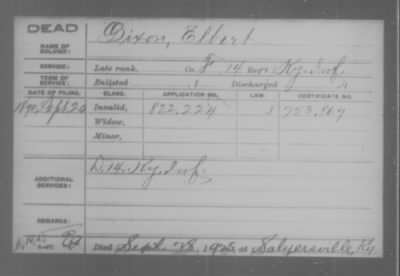 DEAD
NAME OF SOLDIER:
Dixon, Elbert
SERVICE:
Late rank, Co. F, 14 Reg't Ky. Inf.
TERM OF SERVICE:
Enlisted , 1 Discharged , 1
DATE OF FILING. CLASS. APPLICATION NO. LAW. CERTIFICATE NO.
1890, Sept. 20 Invalid, 822,224 753,567
Widow,
Minor,
ADDITIONAL SERVICES:
D. 14. Ky. Inf.
REMARKS:
Died Sept. 28, at Salyersville, Ky.